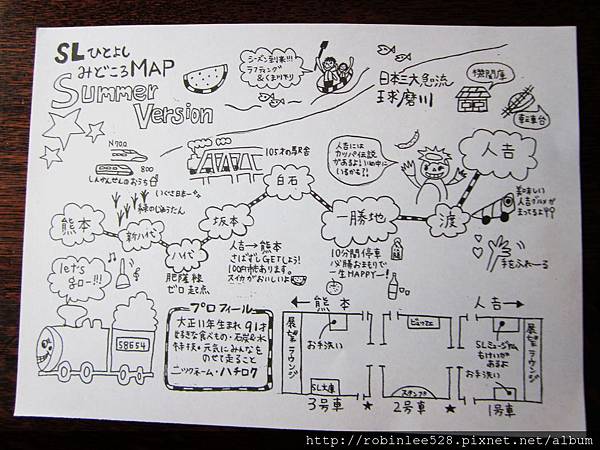 SLひとよし
みどころMAP
Summer
Version
シーズン到来!!!
ラフティング
&くまり下り
日本三大急流
球磨川
機関庫
転車台
N700
800
しんかんせんのおうち
いぐさ日本一
緑のじゅうたん
105才の駅舎
人吉には
カッパ伝説
があるよ!
いるかも?!
人吉
美味しい
人吉グルメが
まってるよ
熊本
新八代
八代
坂本
白石
一勝地
渡
肥薩線
ゼロ起点
人吉→熊本
さばずしGETしよう!
100円市あります。
スイカがおいしいよ
10分間停車
必勝おまもりで
一生HAPPYー!
手をふれーる
let's
go-!!!
58654
プロフィール
大正11年生まれ 91才
好きな食べもの・石炭&水
特技・元気にみんなを
のせて走ること
ニックネーム・ハチロク
←熊本
人吉→
展望ラウンジ
お手洗い
SL文庫
3号車
ビュッフェ
スタンプ
2号車
SLミュージアム
もけいが
あるよ
お手洗い
1号車
展望ラウンジ
http://robinlee528.pixnet.net/album